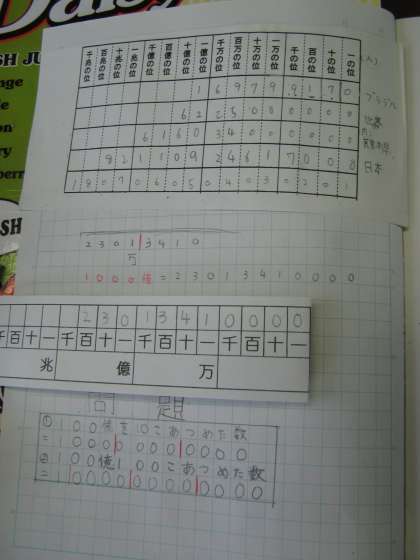 千兆の位 百兆の位 十兆の位 一兆の位 千億の位 百億の位 十億の位 一億の位 千万の位 百万の位 十万の位 一万の位 千の位 百の位 十の位 一の位 (人)
1 6 9 7 9 9 1 7 0 ブラジル
6 1 6 0 3 4 0 0 0 0 0 0
1 8 2 1 1 0 9 2 4 6 1 7 0 0 0 日本
1 8 0 7 0 6 0 5 0 4 0 3 0 2 0 1
2 3 0 1 3 4 1 0
万
1 0 0 0 倍 = 2 3 0 1 3 4 1 0 0 0 0
2 3 0 1 3 4 1 0 0 0 0
千 百 十 一 千 百 十 一 千 百 十 一 千 百 十 一
兆 億 万
問 題
① 1 0 0 億を 1 0 こあつめた数
= 1 0 0 0 0 0 0 0 0 0 0 0
② 1 0 0 億 1 0 0 こあつめた数
= 1 0 0 0 0 0 0 0 0 0 0 0 0